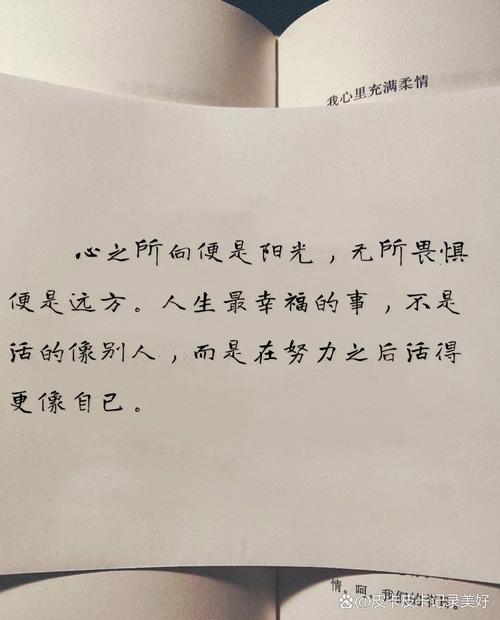 我心里充满柔情
心之所向便是阳光，无所畏惧
便是远方。人生最幸福的事，不是
活的像别人，而是在努力之后活得
更像自己。
情。呵，我们的
皮卡皮卡记录美好